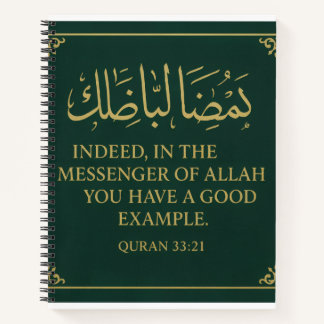 يَمُضَا لبَّاضَلك
INDEED, IN THE
MESSENGER OF ALLAH
YOU HAVE A GOOD
EXAMPLE.
QURAN 33:21